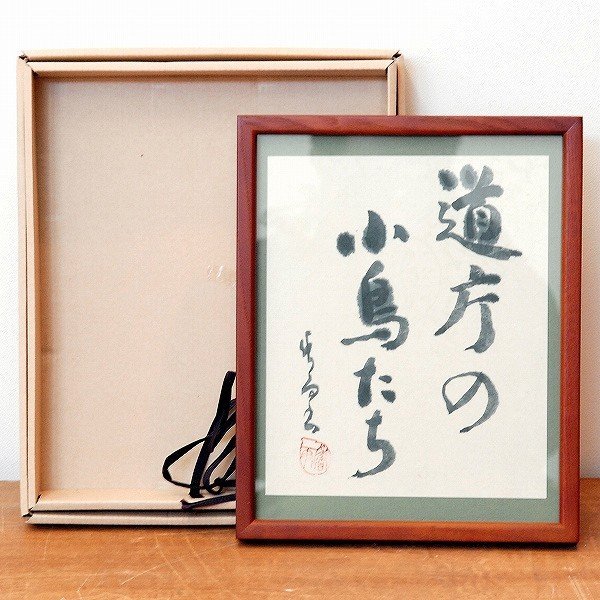 道庁の
小鳥たち